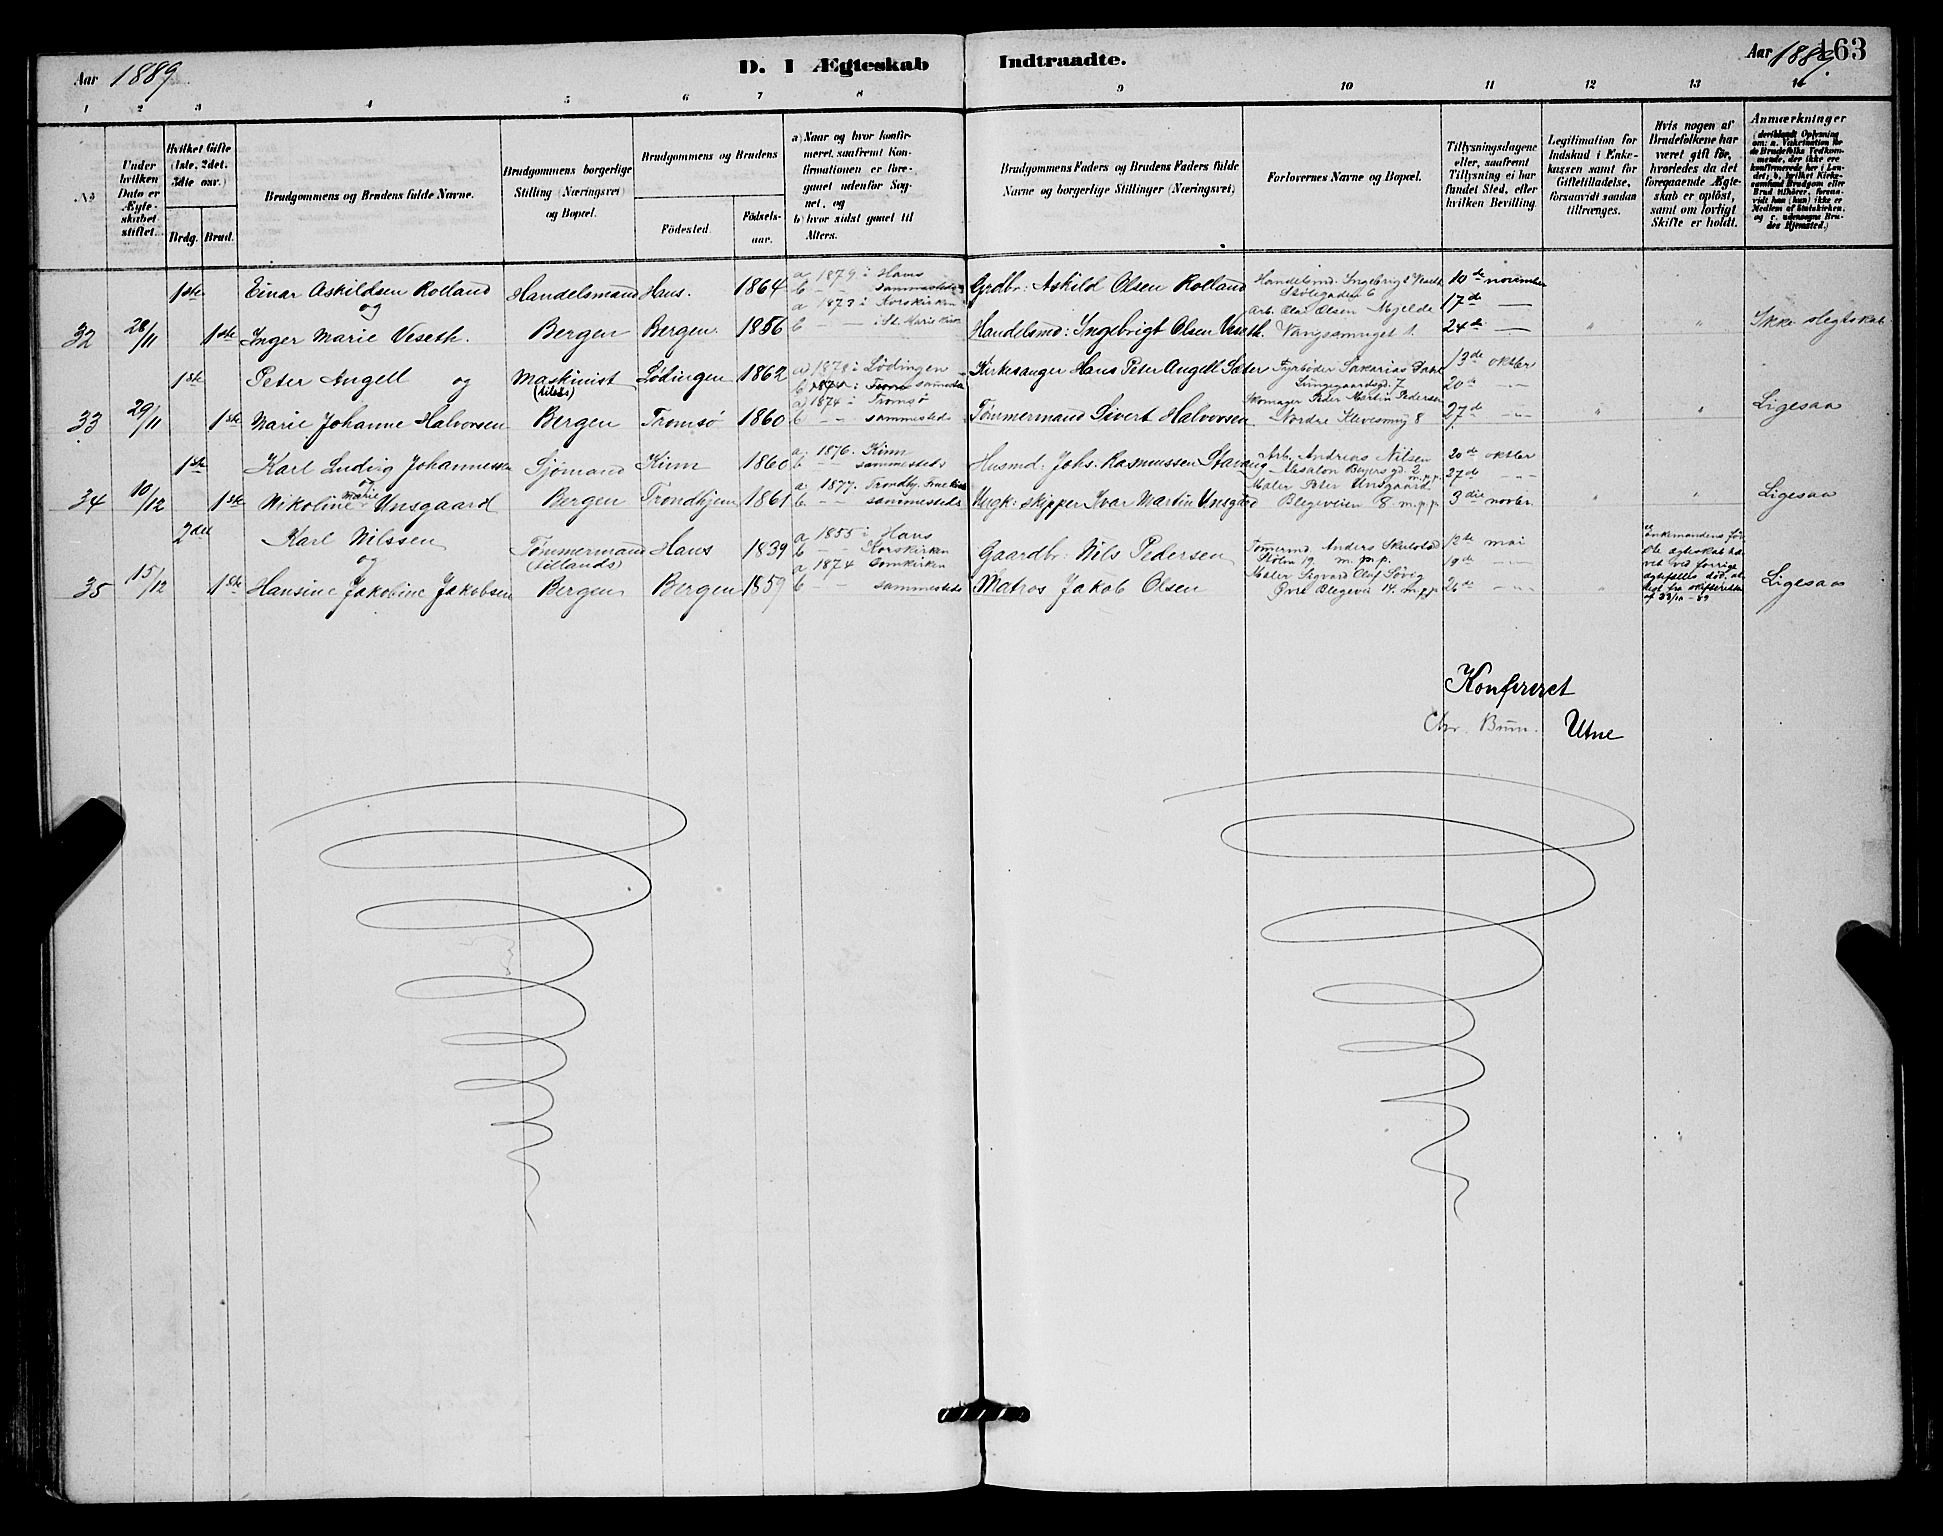 Aar 1889 D. I Ægteskab Indtraadte. Aar 1889. 163
1 2 3 4 5 6 7 8 9 10 11 12 13 14
No
Under hvilken Dato er Ægteskabet stiftet.
Hvilket Gifte (1ste, 2det, 3die osv.)
Brdg. Brud.
Brudgommens og Brudens fulde Navne.
Brudgommens borgerlige Stilling (Næringsvei) og Bopæl.
Brudgommens og Brudens
Födested. Födselsaar.
a) Naar og hvor konfirmeret, saafremt Konfirmationen er foregaaet udenfor Sognet, og
b) hvor sidst gaaet til Alters.
Brudgommens Faders og Brudens Faders fulde Navne og borgerlige Stillinger (Næringsvei)
Forlovernes Navne og Bopæl.
Tillysningsdagene eller, saafremt Tillysning ei har fundet Sted, efter hvilken Bevilling.
Legitimation for Indskud i Enkekassen samt for Giftetilladelse, forsaavidt saadan tiltrænges.
Hvis nogen af Brudefolkene har været gift för, hvorledes da det foregaaende Ægteskab er oplöst, samt om lovligt Skifte er holdt.
Anmærkninger
1ste Einar Askildsen Rolland Handelsmand Haus. 1864 a 1879 i Haus Grdbr: Askild Olsen Rolland Handelsmd. Ingebrigt Veseth 10de november
og b - - sammesteds Stølegaden 6 17de —
a 1873 i Korskirken Arb. Olai Olsen Mjelde
32 28/11 1ste Inger Marie Veseth. Bergen Bergen. 1856 b - - i St. Marie kirk Handelsmd: Ingebrigt Olsen Veseth. Vangsmuget 1. 24de — " " Ikke slegtskab
1ste Peter Angell og Maskinist Lødingen 1862 a) 1878 i Lødingen Kirkesanger Hans Peter Angell Sæter Fyrbøder Sakarias 13de oktbr
(tilets) Lungegaardsgd. 7 20de -"-
a) 1874 i Tromsø Skomager Peder Martin Pedersen
33 29/11 1ste Marie Johanne Halvorsen Bergen Tromsø 1860 b - - sammesteds Tømmermand Sivert Halvorsen. Nordre 8 27de -"- " " Ligesaa
1ste Karl Ludvig Johannessen Sjømand Kinn 1860 a. 1876. Kinn Husmd: Johs. Rasmussen Stavang Arb. Andreas Nilsen 20de oktbr
og b - - sammesteds Absalon Beyersgd. 2 m.p.p. 27de -"-
a 1877. Trondhj. Frue kirke Maler Peter Unsgaard
34 10/12 1ste Nikoline Marie Unsgaard Bergen Trondhjem 1861 b - - sammesteds Skipper Ivar Martin Unsgård Blegeveien 8 m.p.p. 3die novbr. " " Ligesaa
2det Karl Nilssen Tømmermand Haus 1839 a 1855 i Haus Gaardbr: Nils Pedersen Tømmermd. Anders 12te mai
og (tillands) b - - Korskirken Stølen 19. m.p.p. 19de -"-
a 1874 Domkirken Maler Sigvard Olaf Søvig
35 15/12 1ste Hansine Jakobine Jakobsen Bergen Bergen 1859 b - sammesteds Matros Jakob Olsen Øvre Blegevei 14. m.p.p. 26de -"- " Ligesaa
Enkemandens før
ste ægteskab hæ
vet ved forrige
ægtefælles død, at
test fra skifteretten
af 23/10 - 89
Konfereret
Chr. Bruun. Utne